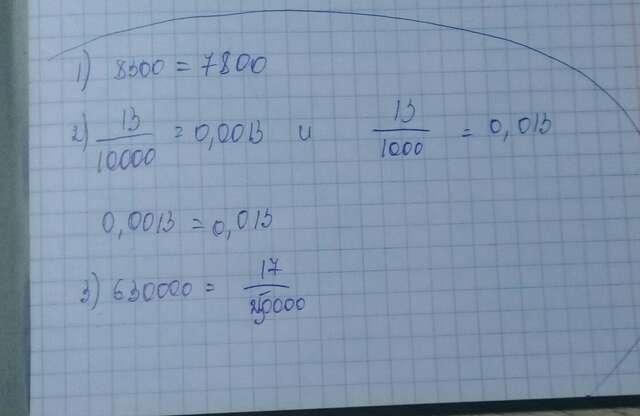 1) 8300 = 7800
2) 13/10000 = 0,0013 и 13/1000 = 0,013
0,0013 = 0,013
3) 630000 = 17/20000